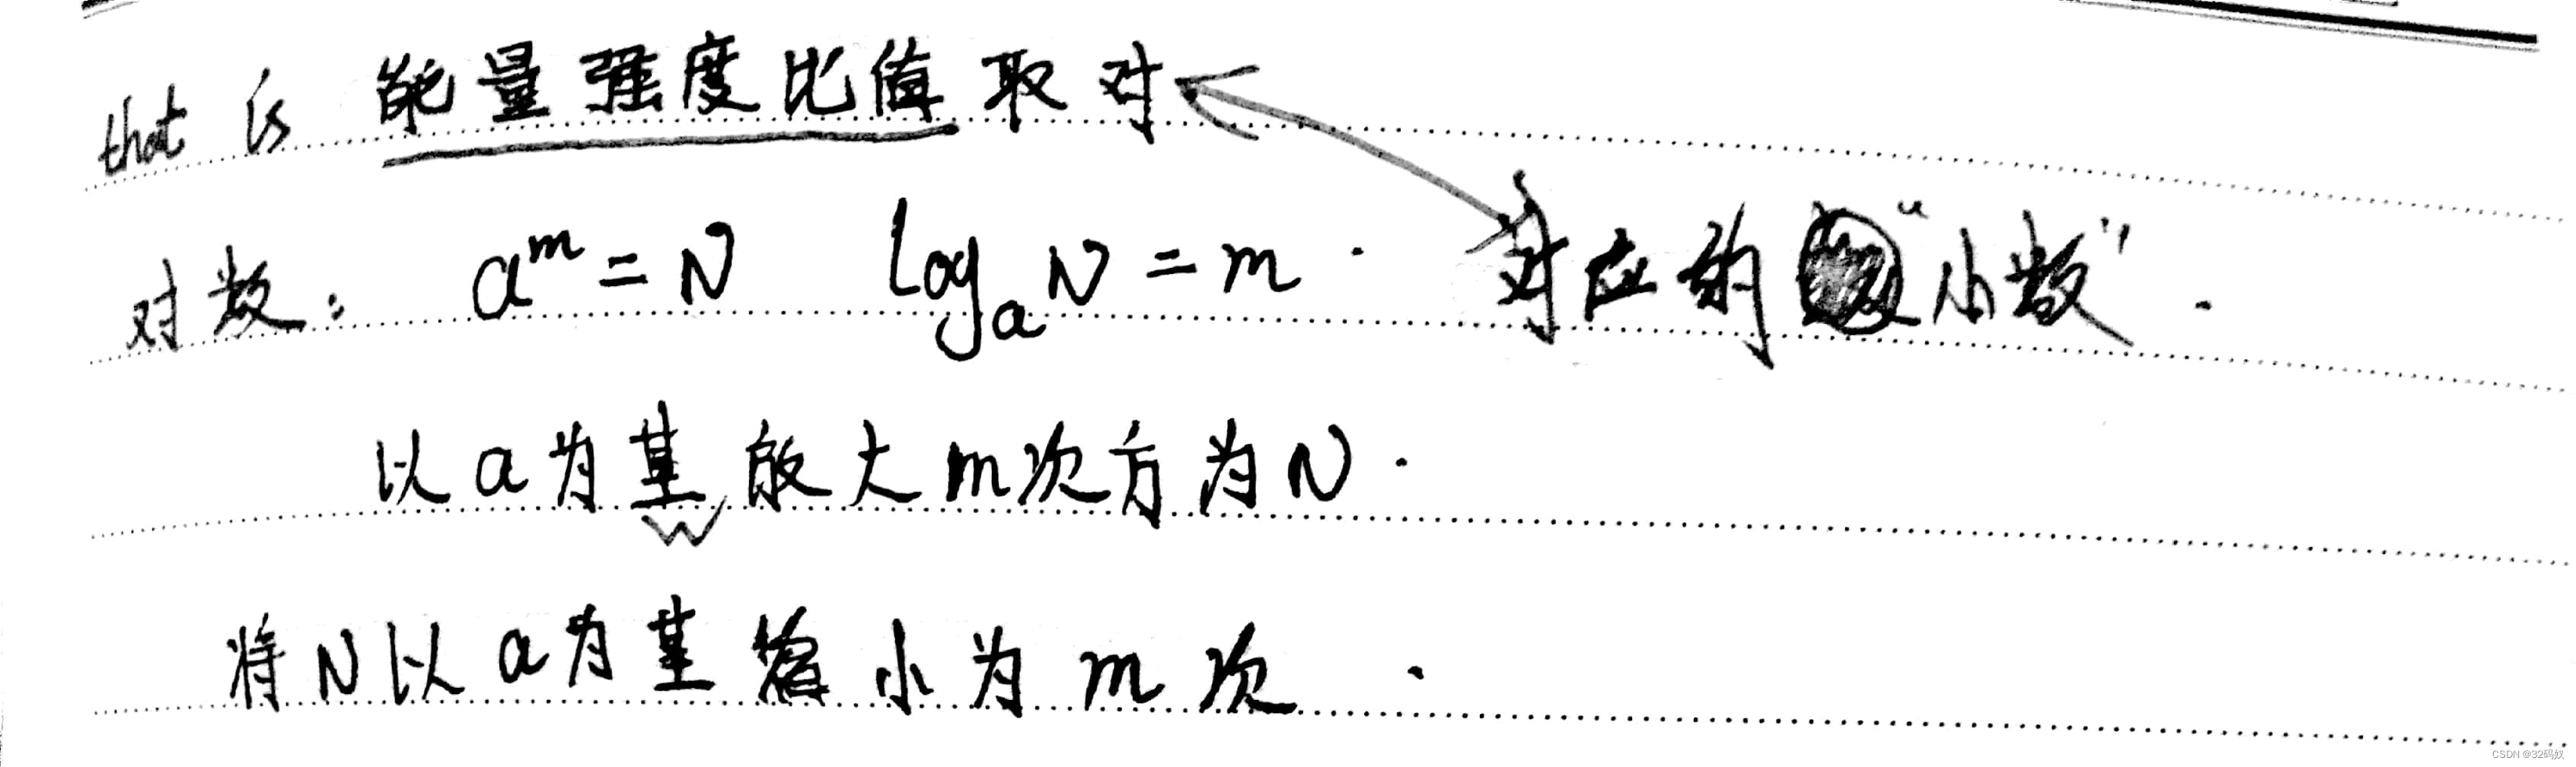 that is 能量强度比值取对
对数: a^m = N log_a N = m. 对应的 "小数".
以a为基放大m次方为N.
将N以a为基缩小为m次.
CSDN @32码奴